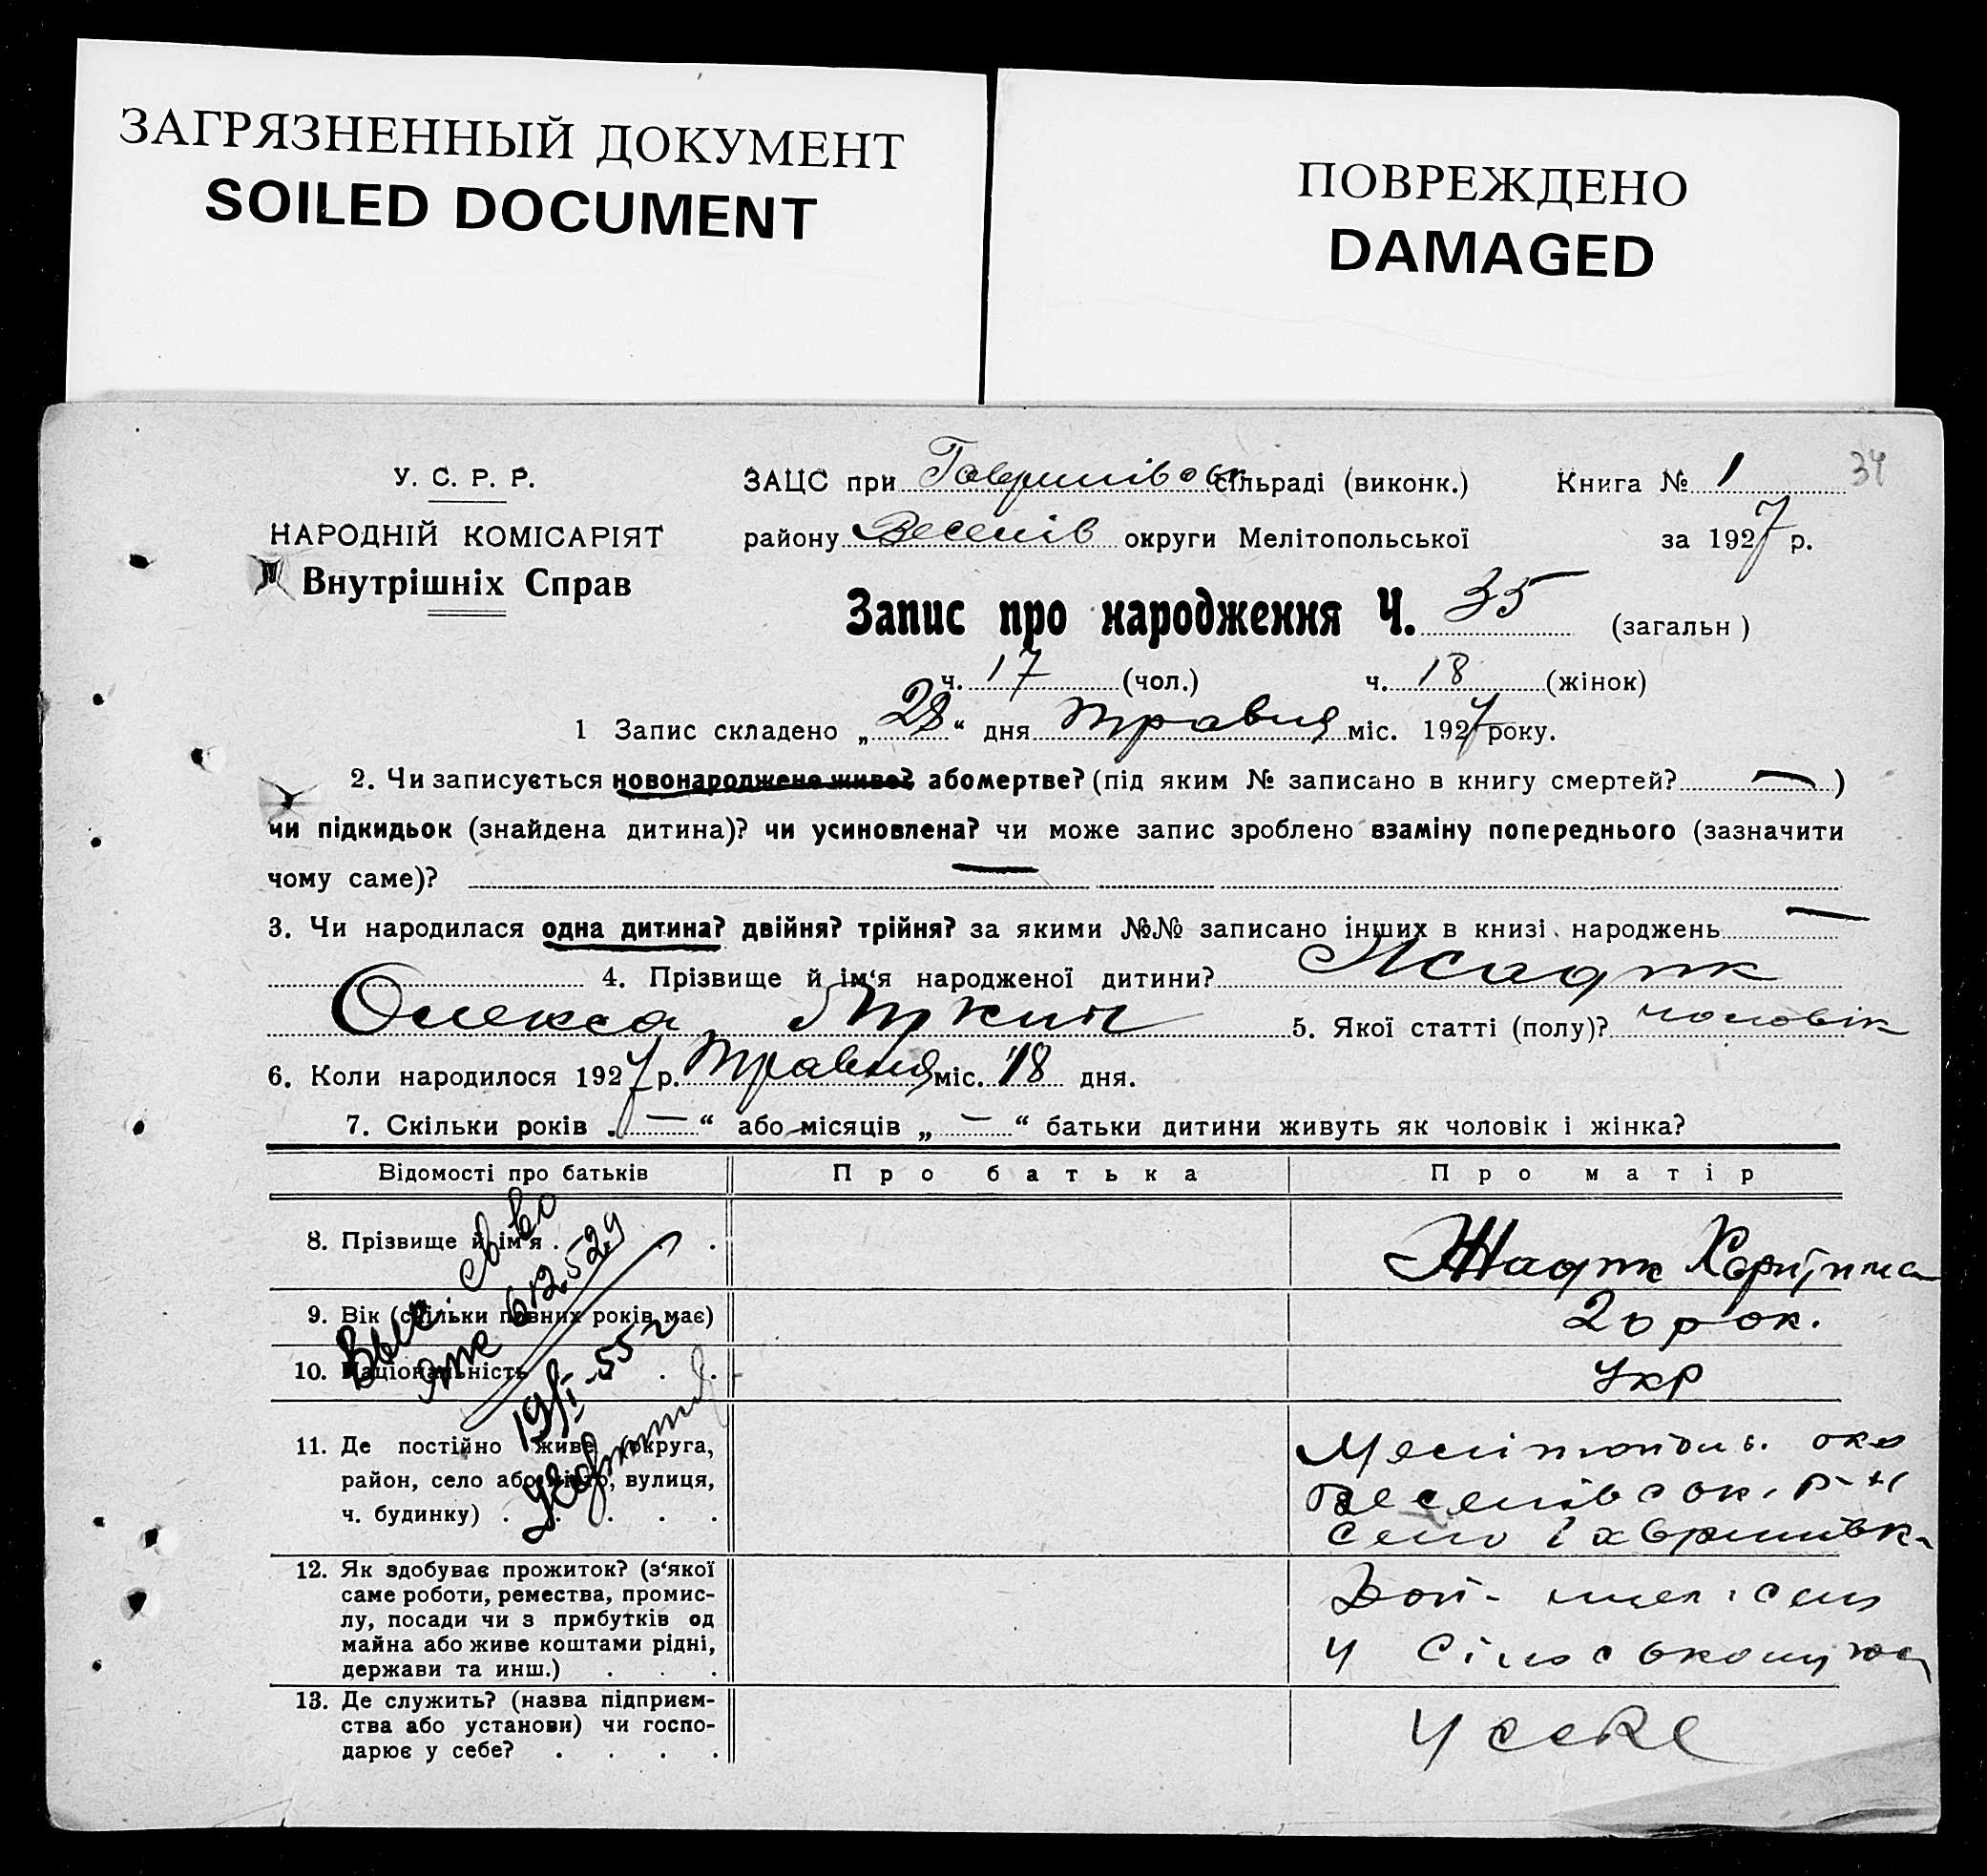 ЗАГРЯЗНЕННЫЙ ДОКУМЕНТ
SOILED DOCUMENT
ПОВРЕЖДЕНО
DAMAGED
У. С. Р. Р.
НАРОДНІЙ КОМІСАРІЯТ
Внутрішніх Справ
ЗАЦС при Гаврилівськ сільраді (виконк.) Книга № 1 34
району Веселів округи Мелітопольської за 1927 р.
Запис про народження Ч. 35 (загальн)
ч. 17 (чол.) ч. 18 (жінок)
1 Запис складено „28“ дня травня міс. 1927 року.
2. Чи записується новонароджене живе? або мертве? (під яким № записано в книгу смертей? — )
чи підкидьок (знайдена дитина)? чи усиновлена? чи може запис зроблено взаміну попереднього (зазначити
чому саме)? —
3. Чи народилася одна дитина? двійня? трійня? за якими №№ записано інших в книзі народжень —
4. Прізвище й ім‘я народженої дитини?
Олекса 5. Якої статті (полу)? чоловік
6. Коли народилося 1927 р. Травня міс. 18 дня.
7. Скільки років „ — “ або місяців „ — “ батьки дитини живуть як чоловік і жінка?
Відомості про батьків Про батька Про матір
8. Прізвище й ім‘я . . .
9. Вік (скільки повних років має) 20 рок.
10. Національність . . . Укр
11. Де постійно живе округа, Мелітополь. окр
район, село або місто, вулиця, Веселівськ. р-н
ч. будинку) . . . . . село Гаврилівк
12. Як здобуває прожиток? (з‘якої
саме роботи, ремества, промис-
лу, посади чи з прибутків од
майна або живе коштами рідні, у сільському
держави та инш.) . . .
13. Де служить? (назва підприєм-
ства або установи) чи госпо- у себе
дарює у себе? . . . .
Вып. св во
612529
19/I-55 г